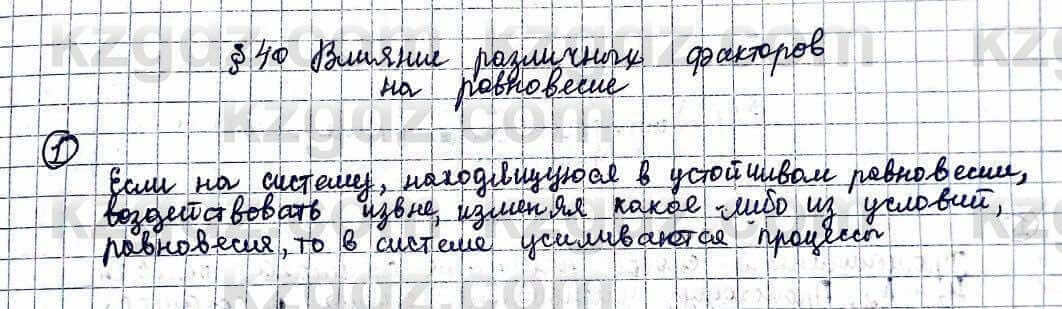 § 40 Влияние различных факторов
на равновесие
1
Если на систему, находящуюся в устойчивом равновесии,
воздействовать извне, изменяя какое-либо из условий,
равновесия, то в системе усиливаются процессы
kzgdz.com